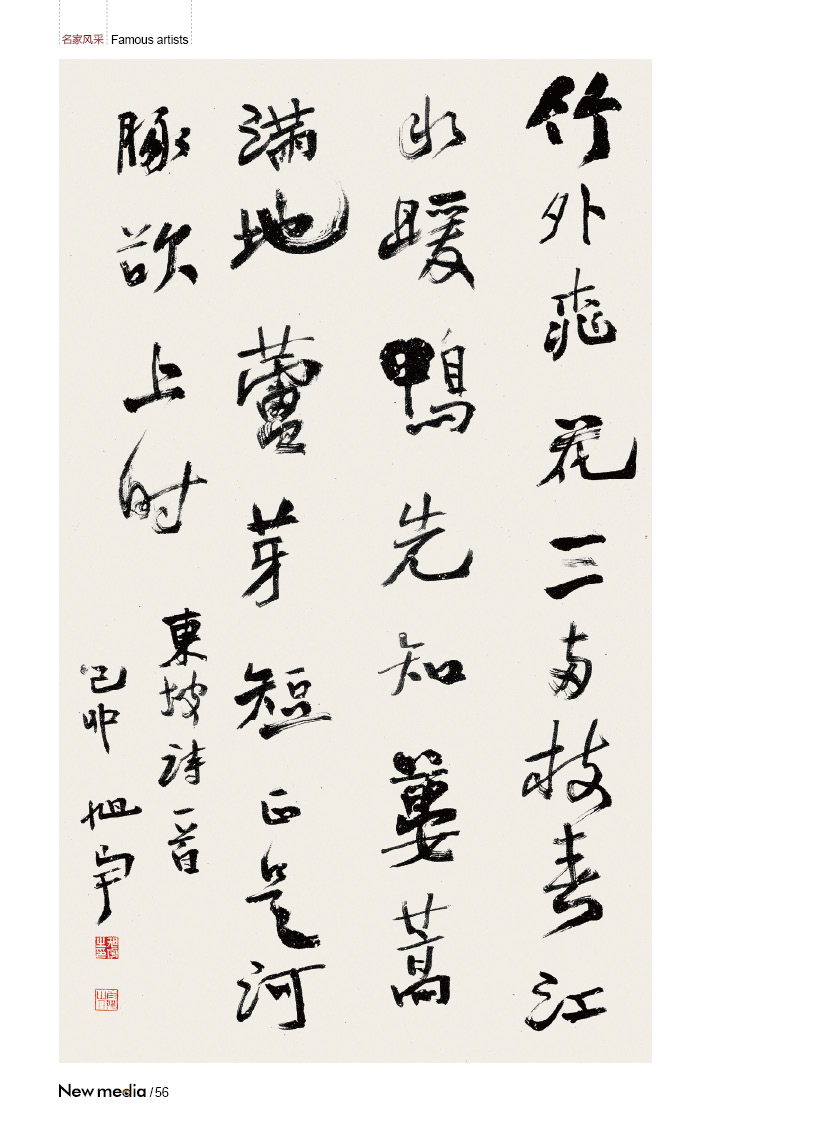 名家风采 Famous artists
竹外桃花三两枝春江
水暖鴨先知蔞蒿
满地蘆芽短正是河
豚欲上时
東坡诗一首
己卯 旭宇
New media / 56